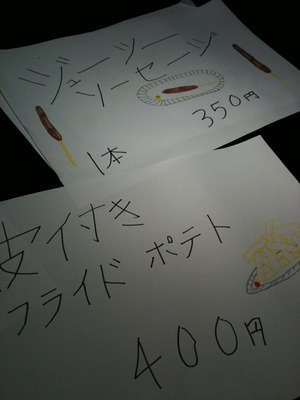 ジューシー
ソーセージ
1本
350円
皮付き
フライドポテト
400円